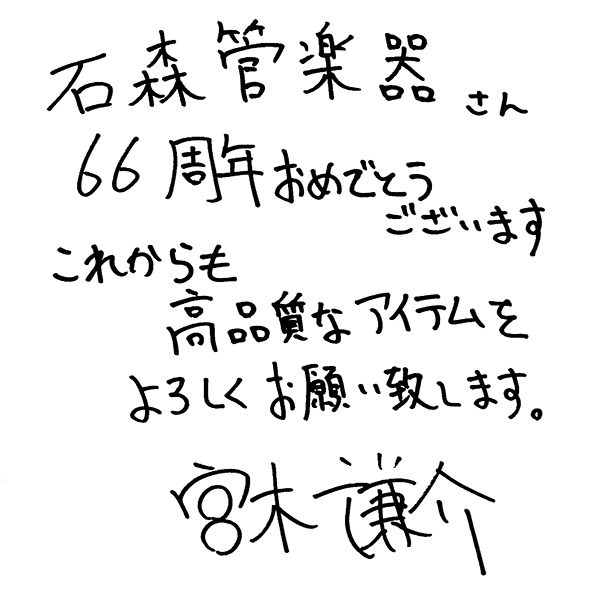 石森管楽器さん
66周年おめでとう
ございます
これからも
高品質なアイテムを
よろしくお願い致します。
宮木謙介